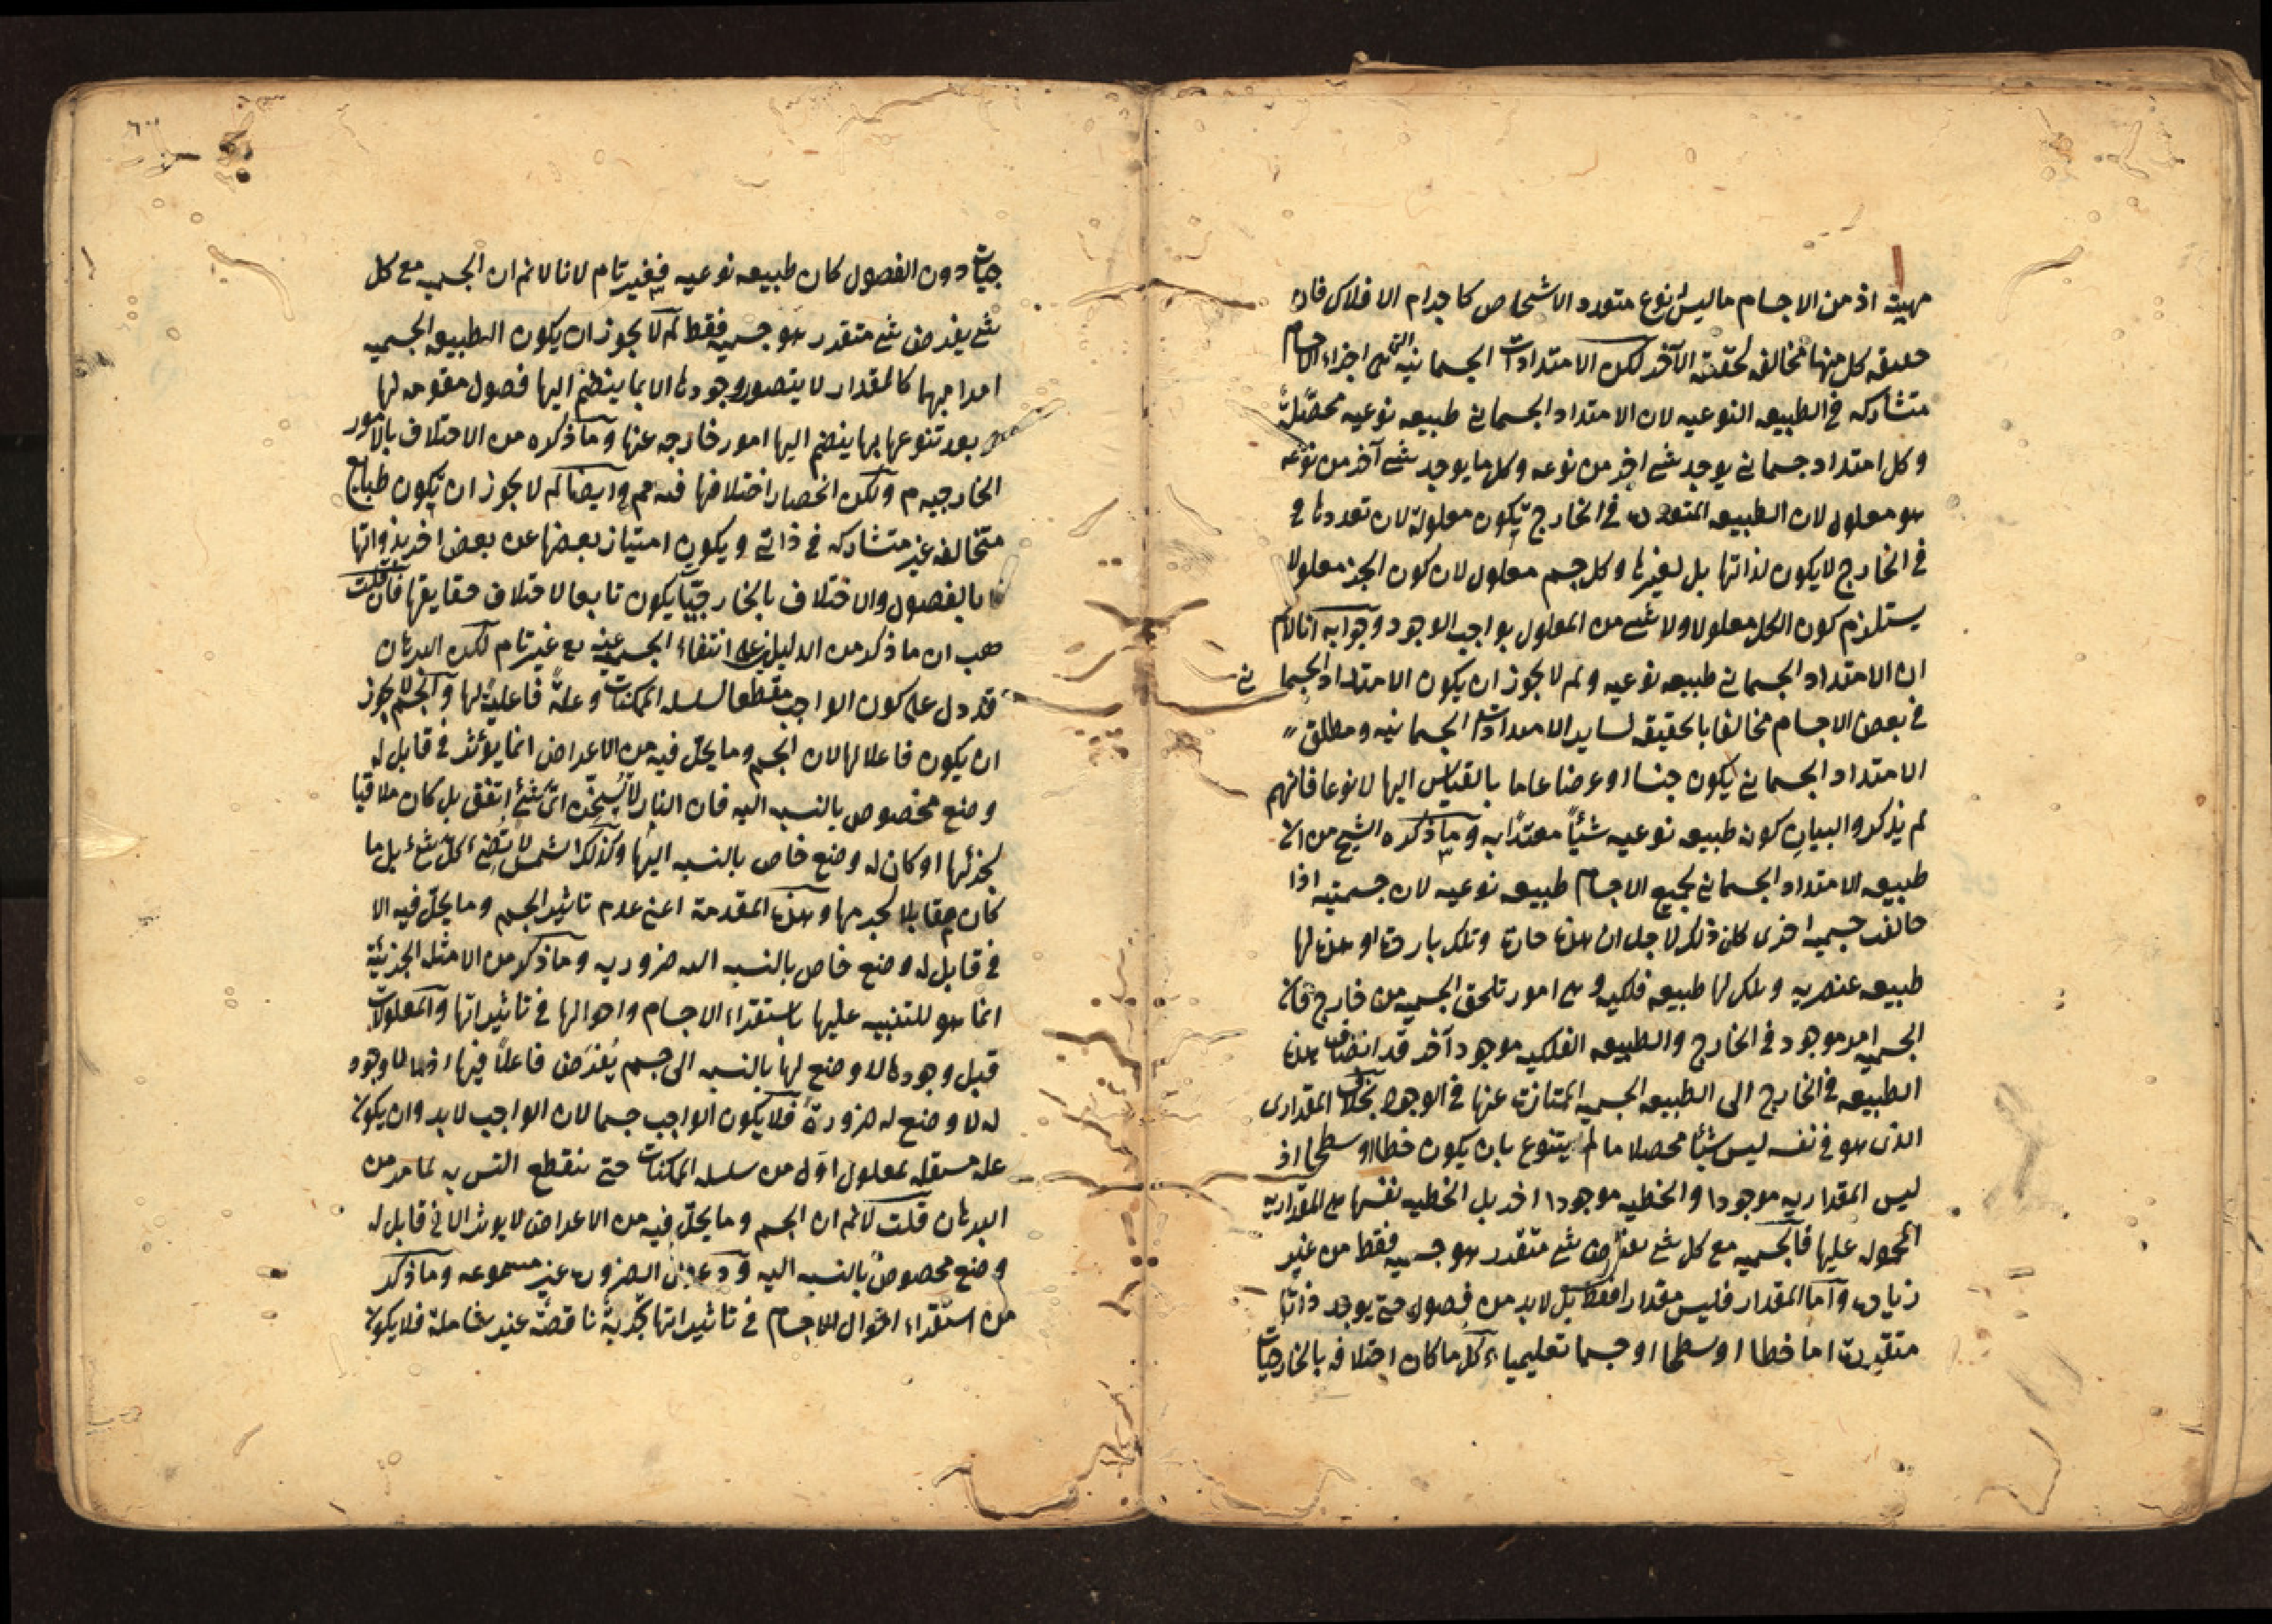 مهيته اذ من الاجسام ما ليس له نوع متعدد الاشخاص كاجرام الافلاك فان
حقيقه كل منها مخالفه لحقيقة الآخر لكن الامتدادات الجسمانيه التي هي اجزاء الاجسام
متشاركه في الطبيعه النوعيه لان الامتداد الجسماني طبيعه نوعيه محصّلة
وكل امتداد جسماني يوجد شي اخر من نوعه وكل ما يوجد شي آخر من نوعه
هو معلول لان الطبيعه المتعدده في الخارج تكون معلولة لان تعددها في
في الخارج لا يكون لذاتها بل لغيرها وكل جسم معلول لان كون الجزء معلولا
يستلزم كون الكل معلولا ولا شي من المعلول بواجب الوجود وجوابه انا لانم
ان الامتداد الجسماني طبيعه نوعيه ولم لا يجوز ان يكون الامتداد الجسماني
في بعض الاجسام مخالفا بالحقيقه لساير الامتدادات الجسمانيه ومطلق
الامتداد الجسماني يكون جنسا او عرضا عاما بالقياس اليها لا نوعا فانهم
لم يذكروا لبيان كونه طبيعه نوعيه شيئاً معتدّا به وما ذكره الشيخ من ان
طبيعه الامتداد الجسماني لجميع الاجسام طبيعه نوعيه لان جسميه اذا
خالفت جسميه اخرى كان ذلك لاجل ان هذه حارة وتلك باردة او هذه لها
طبيعه عنصريه وتلك لها طبيعه فلكيه وهي امور تلحق الجسميه من خارج فان
الجسميه امر موجود في الخارج والطبيعه الفلكيه موجود آخر قد انضاف هذه
الطبيعه في الخارج الى الطبيعه الجسميه الممتازة عنها في الوجود بخلاف المقدار
الذي هو في نفسه ليس شيئا محصلا ما لم يتنوع بان يكون خطا او سطحا اذ
ليس المقداريه موجودا والخطيه موجودا اخر بل الخطيه نفسها هي المقداريه
المحموله عليها فالجسميه مع كل شي يفرض شي متقرر هو جسميه فقط من غير
زياده واما المقدار فليس مقدارا فقط بل لابد من فصول حتى يوجد ذاتا
متقررة اما خطا او سطحا او جسما تعليميا وكل ما كان اختلافه بالخارجيات
جيات دون الفصول كان طبيعه نوعيه فغير تام لانا لانم ان الجسميه مع كل
شي يفرض شي متقرر هو جسميه فقط لم لا يجوز ان يكون الطبيعه الجسميه
امرا مبهما كالمقدار لا يتصور وجودها الا بما ينضم اليها فصول مقومه لها
بعد تنوعها بها ينضم اليها امور خارجه عنها وما ذكره من الاختلاف بالامور
الخارجيه م ولكن انحصار اختلافها فيه مم وايضا لم لا يجوز ان يكون طبايع
متخالفه غير متشاركه في ذاتي ويكون امتياز بعضها عن بعض اخر بذواتها
لا بالفصول والاختلاف بالخارجيات يكون تابعا لاختلاف حقايقها فان قلت
هب ان ما ذكر من الدليل على انتفاء الجسميه عنه تع غير تام لكن البرهان
قد دل على كون الواجب مقطعا لسلسله الممكنات وعلة فاعلية لها والجسم لا يجوز
ان يكون فاعلا لها لان الجسم وما يحل فيه من الاعراض انما يؤثر في قابل له
وضع مخصوص بالنسبه اليه فان النار لا تسخن اىّ شئ اتفق بل كان ملاقيا
لجزئها او كان له وضع خاص بالنسبه اليها وكذلك الشمس لا تضئ كل شئ بل ما
كان مقابلا لجرمها وهذه المقدمة اعني عدم تاثير الجسم وما يحل فيه الا
في قابل له وضع خاص بالنسبه اليه ضروريه وما ذكر من الامثله الجزئية
انما هو للتنبيه عليها باستقراء الاجسام واحوالها في تاثيراتها والمعلولات
قبل وجودها لا وضع لها بالنسبه الى جسم يفرض فاعلاً فيها اذ ما لا وجود
له لا وضع له ضرورة فلا يكون الواجب جسما لان الواجب لابد وان يكون
علة مستقله لمعلول اول من سلسله الممكنات حتى ينقطع التس به لما مر من
البرهان قلت لانم ان الجسم وما يحل فيه من الاعراض لا يوثر الا في قابل له
وضع مخصوص بالنسبه اليه ودعوى الضروره غير مسموعه وما ذكر
من استقراء احوال الاجسام في تاثيراتها تجربة ناقصة غير شاملة فلا يكون